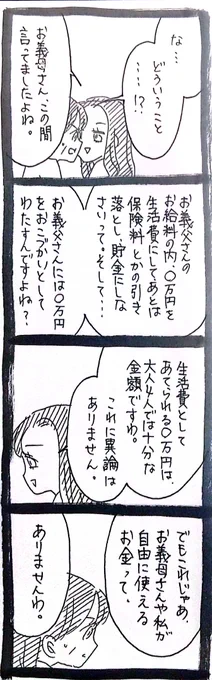 な…
どういうこと
……!?
お義母さん、この間
言ってましたよね。
お義父さんの
お給料の内、〇万円を
生活費にしてあとは
保険料とかの引き
落とし、貯金にしな
さいって。そして…
お義父さんには〇万円
をおこづかいとして
わたすんですよね？
生活費として
あてられる〇万円は、
大人4人では十分な
金額ですわ。
これに異論は
ありません。
でもこれじゃあ、
お義母さんや私が
自由に使える
お金って、
ありませんわ。